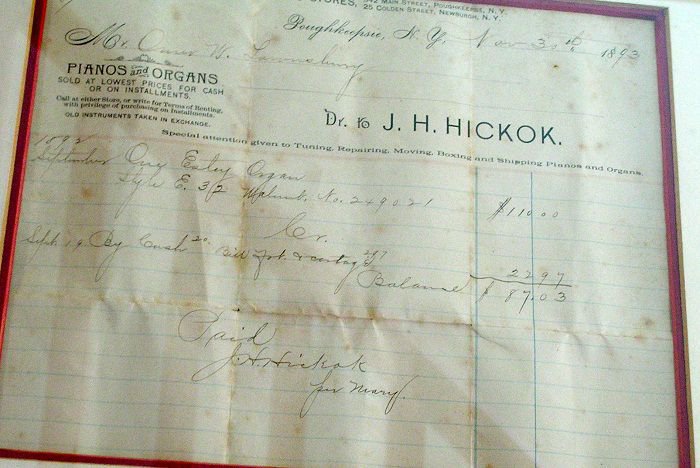 STORES, 342 MAIN STREET, POUGHKEEPSIE, N. Y.
25 COLDEN STREET, NEWBURGH, N. Y.
Poughkeepsie, N. Y. Nov 30th 1893
Mr. W. Lounsbury
PIANOS and ORGANS
SOLD AT LOWEST PRICES FOR CASH
OR ON INSTALLMENTS.
Call at either Store, or write for Terms of Renting,
with privilege of purchasing on Installments.
OLD INSTRUMENTS TAKEN IN EXCHANGE.
Dr. to J. H. HICKOK.
Special attention given to Tuning, Repairing, Moving, Boxing and Shipping Pianos and Organs.
1892
September One Estey Organ
Style E. 32 Walnut. No. 249021 $110.00
Cr.
Sept. 19. By Cash 20. Bill frt. & cartage 297 2297
Balance $87.03
Paid
J. H. Hickok
per Mary.